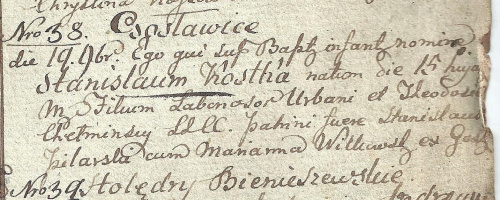 Chrystina
Nro 38. Cysławice
die 19. 9br. Ego qui sup Bapt infant nomine
Stanislaum Kostka nation die 15 hujus
M. Filium Labor Urbani et Theodosia
Chełminscy LLCC. patrini fuere Stanislaus
Pilarski cum Marianna Witkowsk ex
Nro 39 Holędry Bieniszewskie